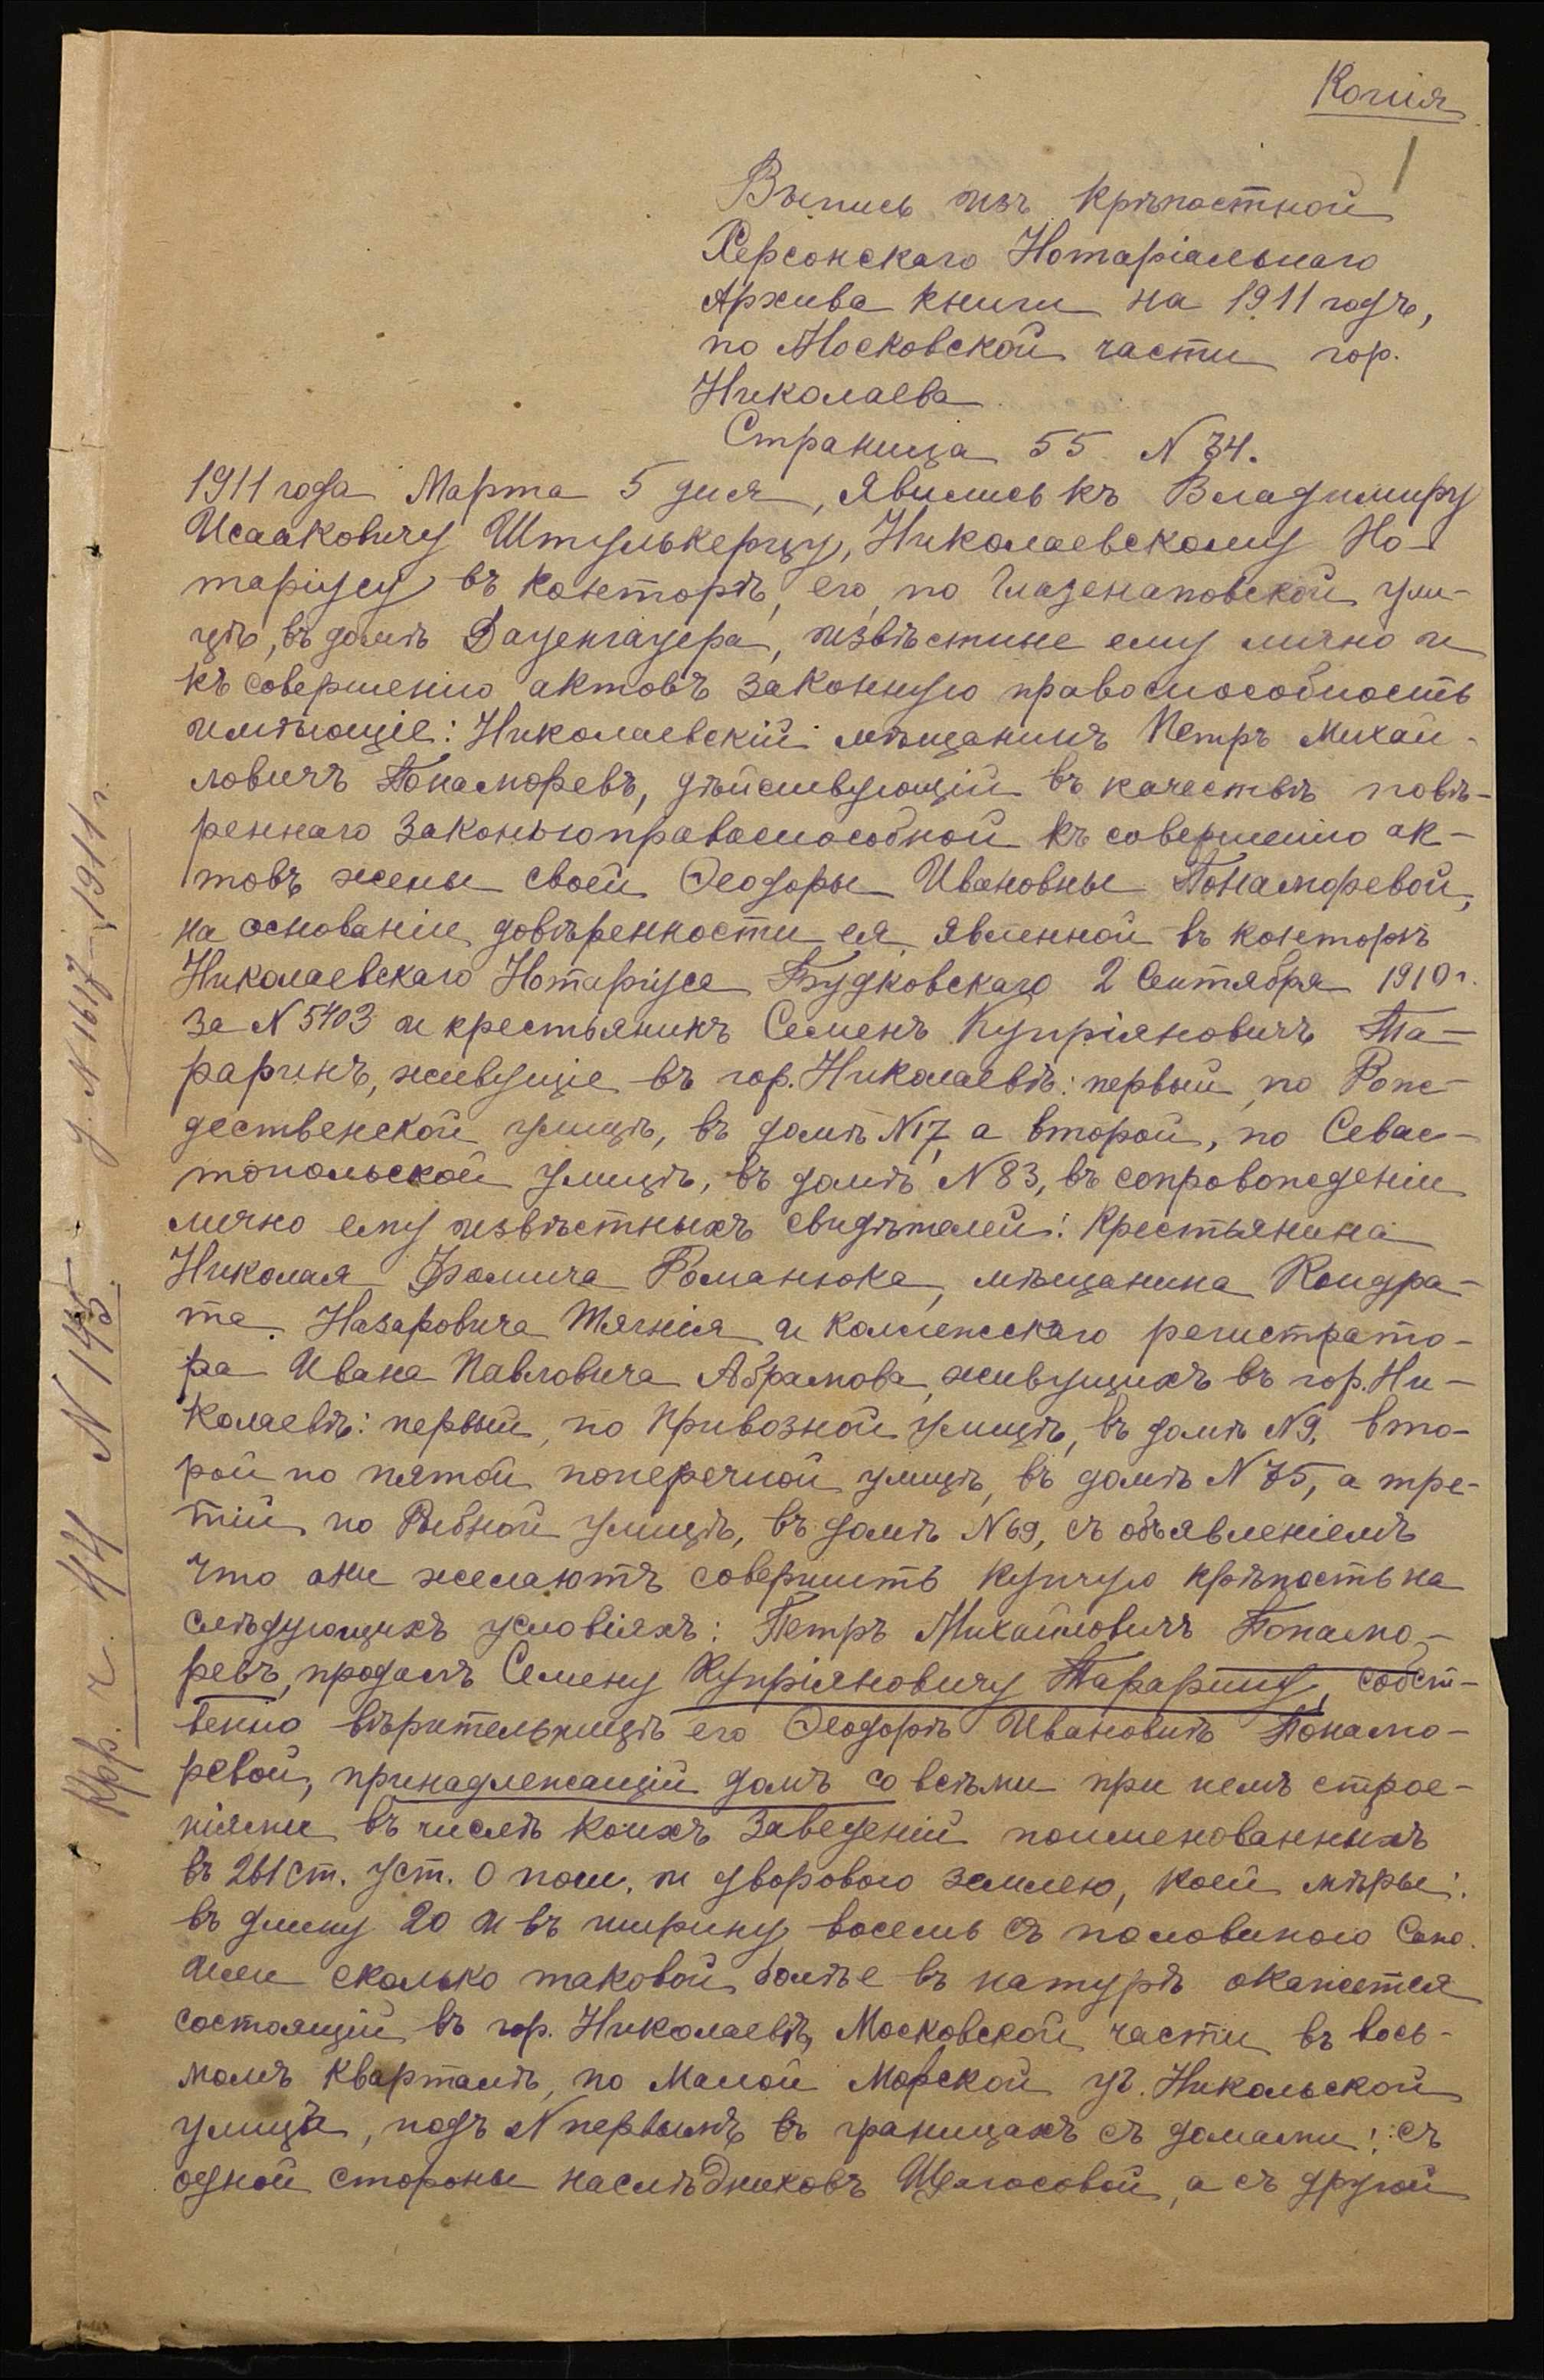 Копія
1
Выпись изъ крѣпостной
Херсонскаго Нотаріальнаго
Архива книги на 1911 годъ,
по Московской части гор.
Николаева
Страница 55 N 34.
1911 года Марта 5 дня, явились къ Владимиру
Исааковичу Штулькерцу, Николаевскому Но-
таріусу въ конторѣ, его, по Глазенаповской ули-
цѣ, въ домѣ Даценгауера, извѣстные ему лично и
къ совершенію актовъ законную правоспособность
имѣющіе: Николаевскій мѣщанинъ Петръ Михай-
ловичъ Понаморевъ, дѣйствующій въ качествѣ повѣ-
реннаго законоправоспособной къ совершенію ак-
товъ жены своей Ѳеодоры Ивановны Понаморевой,
на основаніи довѣренности ея, явленной въ конторѣ
Николаевскаго Нотаріуса Будковскаго 2 Сентября 1910 г.
за N 5403 и крестьянинъ Семенъ Купріяновичъ Та-
раринъ, живущіе въ гор. Николаевѣ: первый, по Рож-
дественской улицѣ, въ домѣ N 17, а второй, по Севас-
топольской улицѣ, въ домѣ N 83, въ сопровожденіи
лично ему извѣстныхъ свидѣтелей: Крестьянина
Николая Фомича Романюка, мѣщанина Кондра-
та Назаровича Тягнія и коллежскаго регистрато-
ра Ивана Павловича Абрамова, живущихъ въ гор. Ни-
колаевѣ: первый, по Привозной улицѣ, въ домѣ N 9, вто-
рой по пятой поперечной улицѣ, въ домѣ N 75, а тре-
тій по Рыбной улицѣ, въ домѣ N 69, съ объявленіемъ
что они желаютъ совершить купчую крѣпость на
слѣдующихъ условіяхъ: Петръ Михайловичъ Понамо-
ревъ, продалъ Семену Купріяновичу Тарарину, собст-
венно вѣрительницѣ его Ѳеодорѣ Ивановнѣ Понамо-
ревой, принадлежащій домъ со всѣми при немъ строе-
ніями въ числѣ коихъ заведеній поименованныхъ
въ 261 ст. уст. о пош. и дворовою землею, коей мѣры:
въ длину 20 и въ ширину восемь съ половиною Саж.
или сколько таковой болѣе въ натурѣ окажется
состоящій въ гор. Николаевѣ, Московской части въ вось-
момъ кварталѣ, по Малой Морской уг. Никольской
улицъ, подъ N первымъ въ границахъ съ домами: съ
одной стороны наслѣдниковъ Щелгосовой, а съ другой
Крр. г. 44 N 145. у. N 1617 - 1911 г.